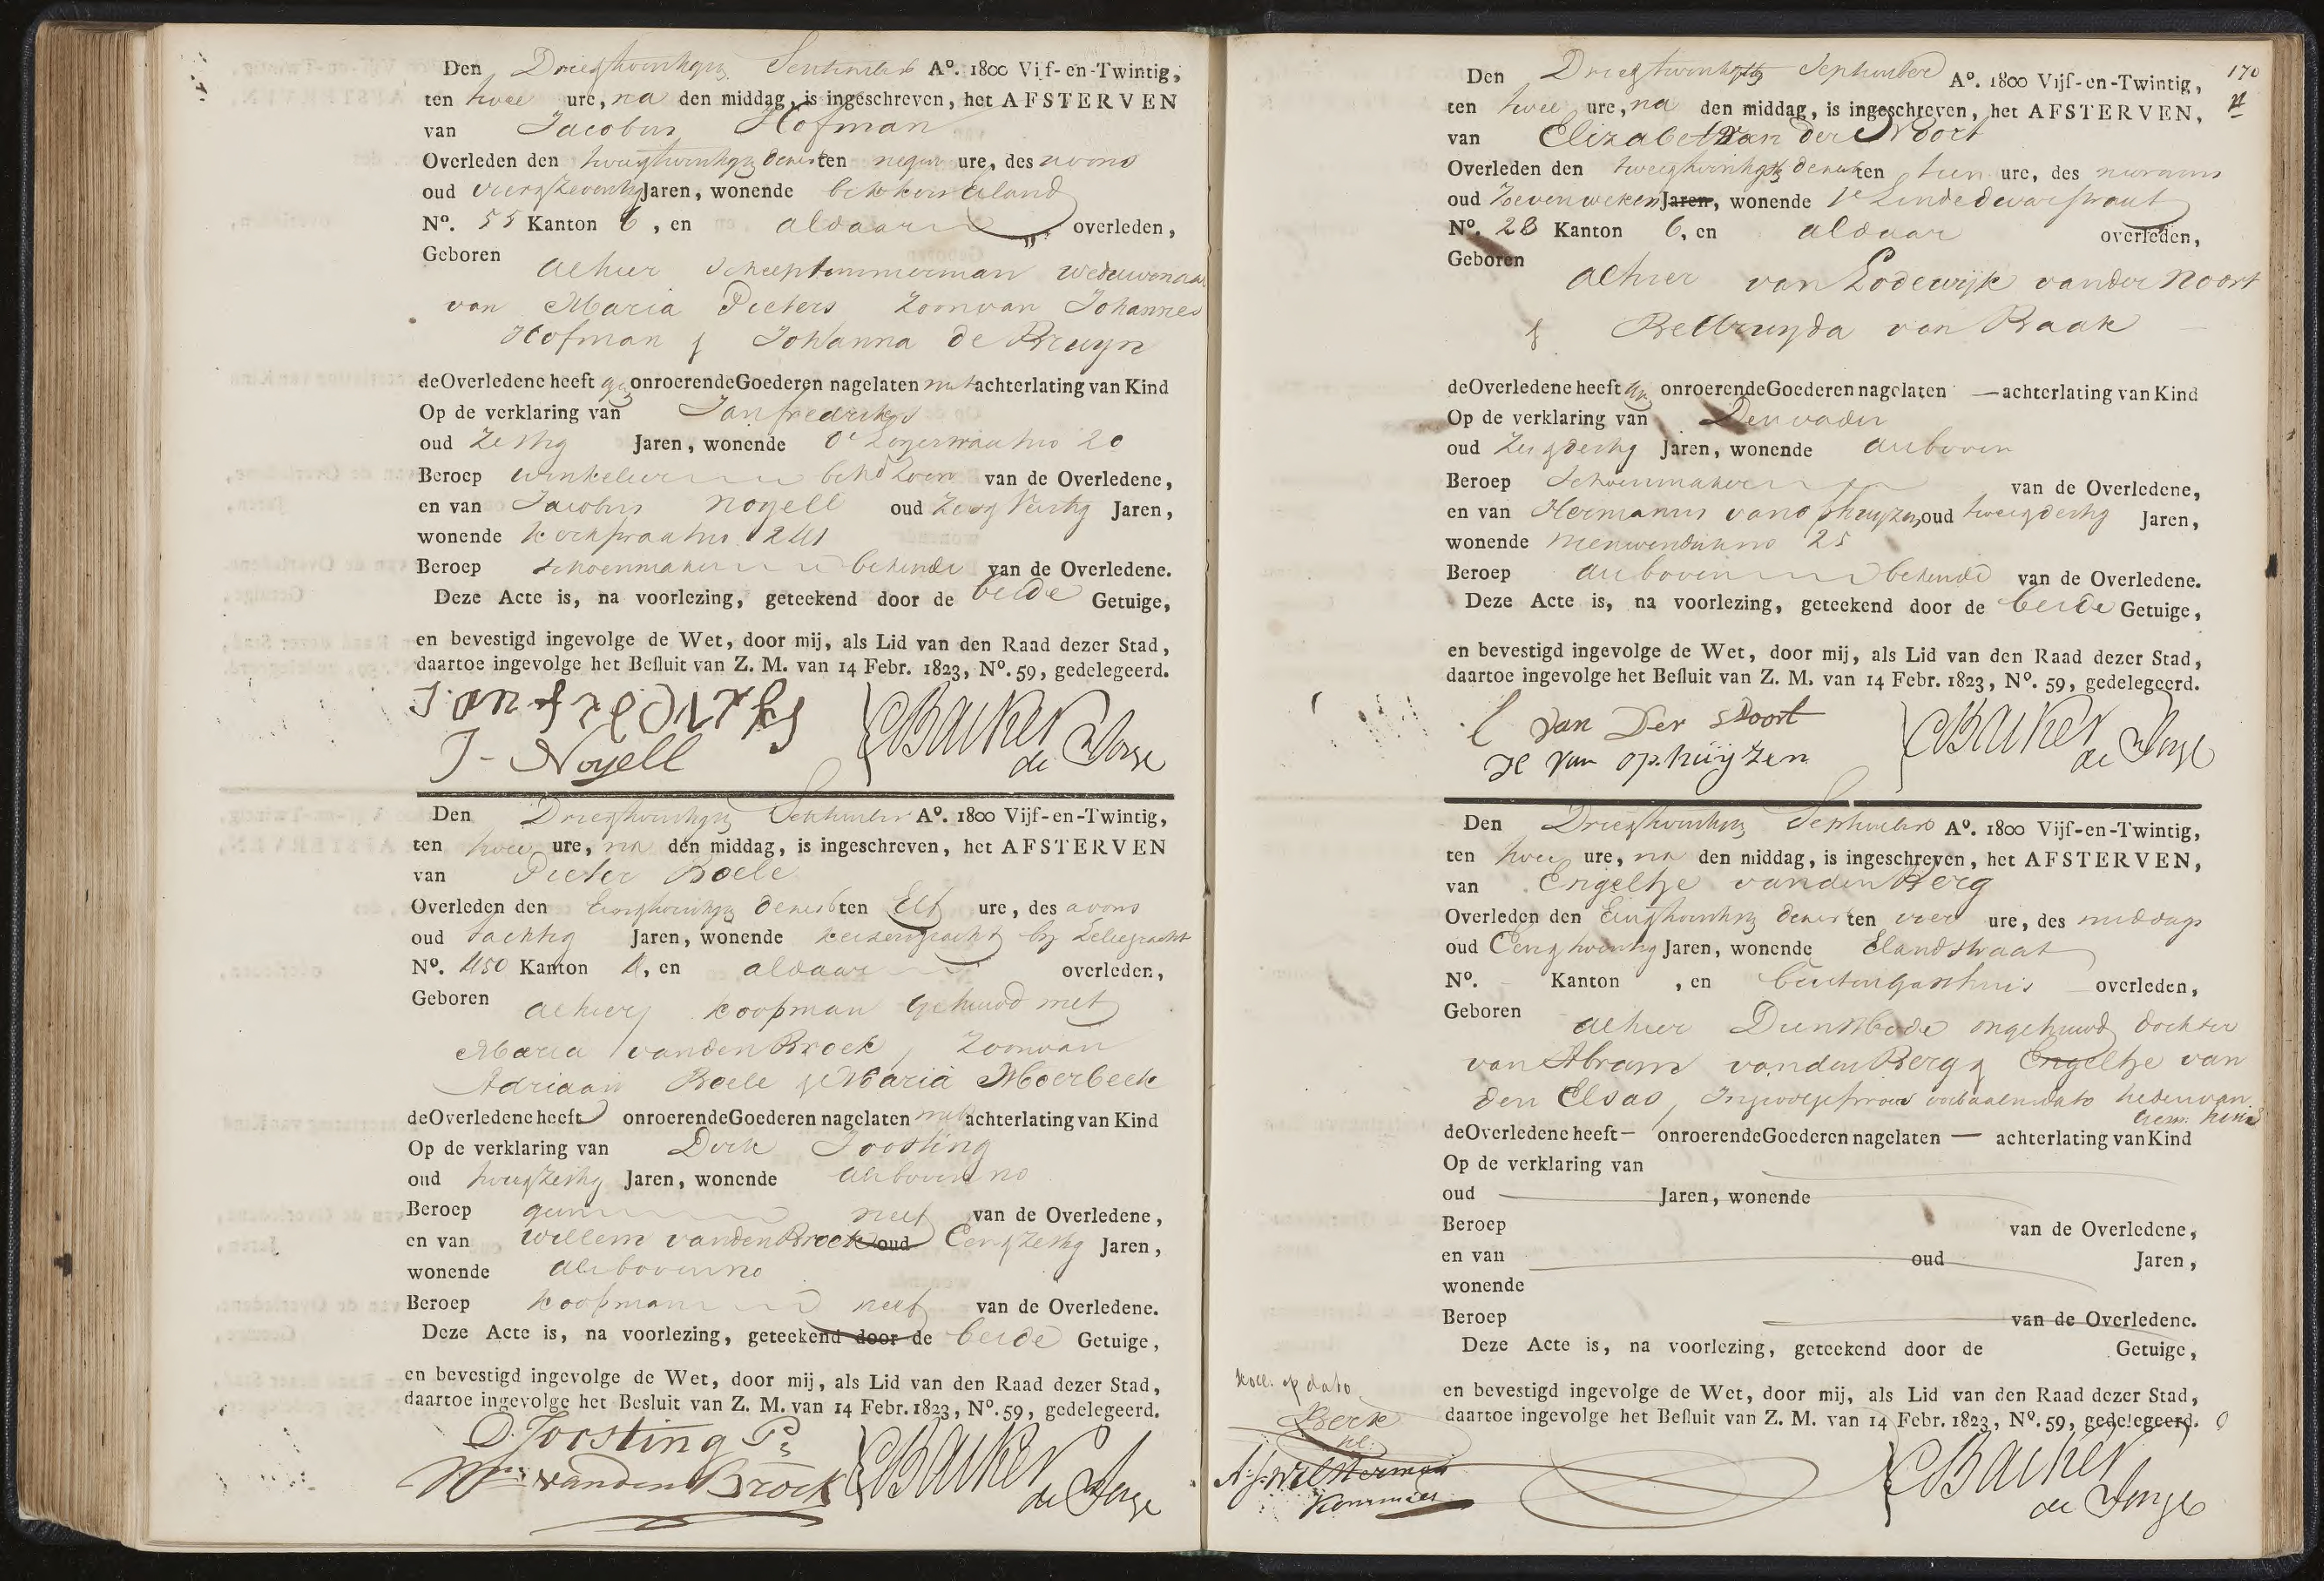 Den Drieëntwintigste September Aº. 1800 Vijf-en-Twintig,
ten twee ure, na den middag, is ingeschreven, het AFSTERVEN
van Jacobus Hofman
Overleden den tweeëntwintigste dezer ten negen ure, des avons
oud vier & zeventig Jaren, wonende bikkerseiland
Nº. 55 Kanton 6, en aldaar overleden,
Geboren alhier scheeptimmerman weduwenaar
van Maria Pieters zoon van Johannes
Hofman & Johanna de Bruyn
de Overledene heeft gn onroerende Goederen nagelaten met achterlating van Kind
Op de verklaring van Jan fredriks
oud zestig Jaren, wonende 20
Beroep winkelier beh zoon van de Overledene,
en van Jacobus Noyell oud Jaren,
wonende kerkstraat no 241
Beroep schoenmaker bekende van de Overledene.
Deze Acte is, na voorlezing, geteekend door de beide Getuige,
en bevestigd ingevolge de Wet, door mij, als Lid van den Raad dezer Stad,
daartoe ingevolge het Besluit van Z. M. van 14 Febr. 1823, Nº. 59, gedelegeerd.
Jan fredriks
J. Noyell
C Backer
de Jonge
Den Drie & twintigste September Aº. 1800 Vijf-en-Twintig,
ten twee ure, na den middag, is ingeschreven, het AFSTERVEN
van Pieter Boele
Overleden den Een & twintigste dezer ten Elf ure, des avons
oud tachtig Jaren, wonende keizersgracht by Leliegracht
Nº. 450 Kanton 4, en aldaar overleden,
Geboren alhier koopman gehuwd met
Maria van den Broek, zoon van
Adriaan Boele & Maria Moerbeek
de Overledene heeft onroerende Goederen nagelaten met achterlating van Kind
Op de verklaring van Dirk Joosting
oud twee & zestig Jaren, wonende als boven no
Beroep geen neef van de Overledene,
en van Willem van den Broek oud Een & zestig Jaren,
wonende als boven no
Beroep koopman neef van de Overledene.
Deze Acte is, na voorlezing, geteekend door de beide Getuige,
en bevestigd ingevolge de Wet, door mij, als Lid van den Raad dezer Stad,
daartoe ingevolge het Besluit van Z. M. van 14 Febr. 1823, Nº. 59, gedelegeerd.
D. Joosting Pz
Wm. van den Broek
C Backer
de Jonge
170
Den Drie & twintigste September Aº. 1800 Vijf-en-Twintig,
ten twee ure, na den middag, is ingeschreven, het AFSTERVEN,
van Elizabeth van der Noort
Overleden den twee & twintigste dezer ten tien ure, des
oud zeven weken Jaren, wonende 1e Lindedwarsstraat
Nº. 28 Kanton 6, en aldaar overleden,
Geboren alhier van Lodewijk van der Noort
& van Baak
de Overledene heeft gn onroerende Goederen nagelaten — achterlating van Kind
Op de verklaring van Den vader
oud zes & dertig Jaren, wonende als boven
Beroep schoenmaker van de Overledene,
en van Hermanus van ophuyzen oud twee & dertig Jaren,
wonende nieuwendijk no 25
Beroep als boven bekende van de Overledene.
Deze Acte is, na voorlezing, geteekend door de beide Getuige,
en bevestigd ingevolge de Wet, door mij, als Lid van den Raad dezer Stad,
daartoe ingevolge het Besluit van Z. M. van 14 Febr. 1823, Nº. 59, gedelegeerd.
l van Der Noort
H van ophuijzen
C Backer
de Jonge
Den Drie & twintigste September Aº. 1800 Vijf-en-Twintig,
ten twee ure, na den middag, is ingeschreven, het AFSTERVEN,
van Engeltje van den Berg
Overleden den Een & twintigste dezer ten vier ure, des middags
oud Een & twintig Jaren, wonende Elandstraat
Nº. Kanton , en buitengasthuis overleden,
Geboren alhier Dienstbode ongehuwd dochter
van Abram van den Berg & Engeltje van
den Elsas, heden van
de Overledene heeft — onroerende Goederen nagelaten — achterlating van Kind
Op de verklaring van
oud Jaren, wonende
Beroep van de Overledene,
en van oud Jaren,
wonende
Beroep van de Overledene.
Deze Acte is, na voorlezing, geteekend door de Getuige,
en bevestigd ingevolge de Wet, door mij, als Lid van den Raad dezer Stad,
daartoe ingevolge het Besluit van Z. M. van 14 Febr. 1823, Nº. 59, gedelegeerd.
op dato
Westerman
C Backer
de Jonge